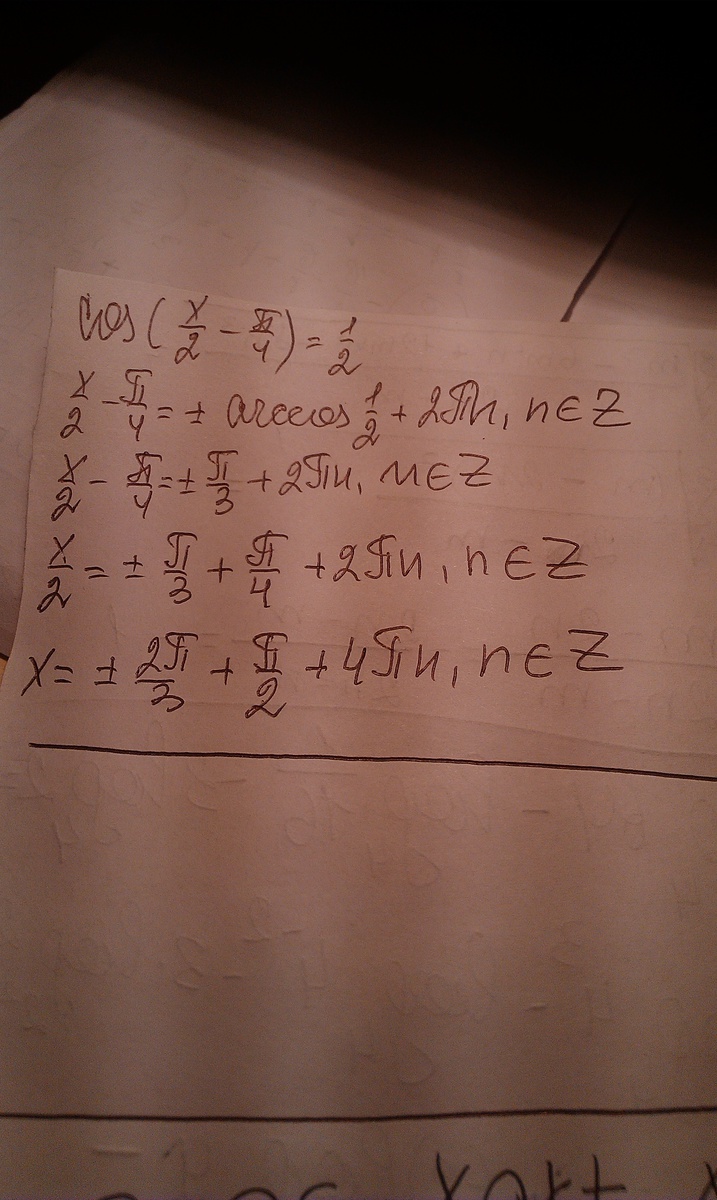 cos(x/2 - π/4) = 1/2
x/2 - π/4 = ± arccos 1/2 + 2πn, n∈Z
x/2 - π/4 = ± π/3 + 2πn, n∈Z
x/2 = ± π/3 + π/4 + 2πn, n∈Z
x = ± 2π/3 + π/2 + 4πn, n∈Z